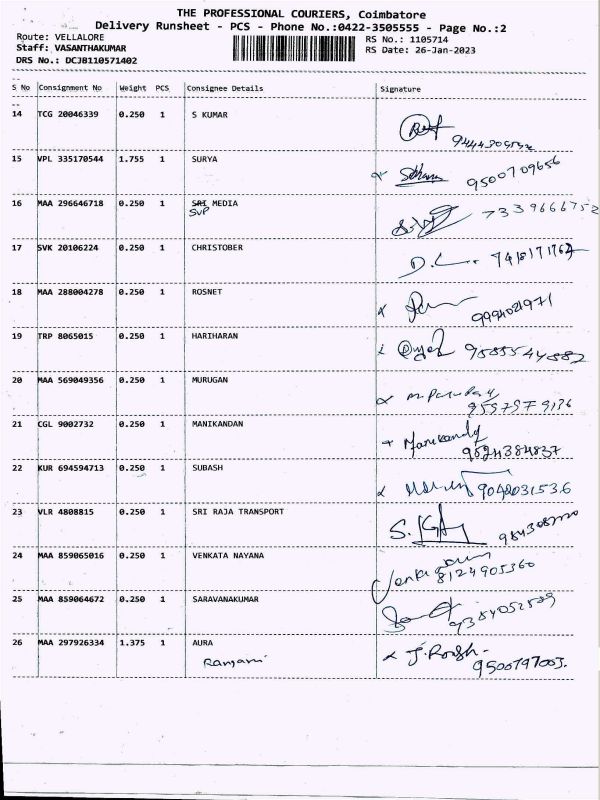 THE PROFESSIONAL COURIERS, Coimbatore
Delivery Runsheet - PCS - Phone No.:0422-3505555 - Page No.:2
Route: VELLALORE RS No.: 1105714
Staff: VASANTHAKUMAR RS Date: 26-Jan-2023
DRS No.: DCJB110571402
S No Consignment No Weight PCS Consignee Details Signature
14 TCG 20046339 0.250 1 S KUMAR
15 VPL 335170544 1.755 1 SURYA 9500709656
16 MAA 296646718 0.250 1 SRI MEDIA 7339666752
SVP
17 SVK 20106224 0.250 1 CHRISTOBER
18 MAA 288004278 0.250 1 ROSNET
19 TRP 8065015 0.250 1 HARIHARAN
20 MAA 569049356 0.250 1 MURUGAN
21 CGL 9002732 0.250 1 MANIKANDAN Manikandan
22 KUR 694594713 0.250 1 SUBASH
23 VLR 4808815 0.250 1 SRI RAJA TRANSPORT
24 MAA 859065016 0.250 1 VENKATA NAYANA
8124905360
25 MAA 859064672 0.250 1 SARAVANAKUMAR
26 MAA 297926334 1.375 1 AURA
Ranjani 9500797003.